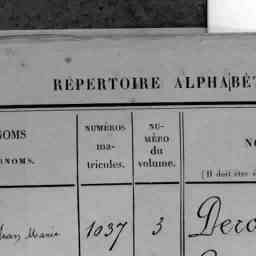 RÉPERTOIRE ALPHABÉT
NOMS
PRÉNOMS.
NUMÉROS
ma-
tricules.
NU-
MÉRO
du
volume.
NO
(Il doit être
Jean Marie
1037
3
Dero